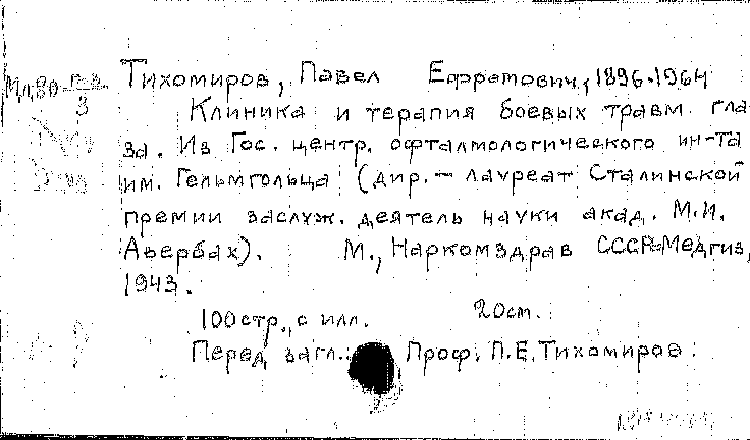 Тихомиров, Павел Ефремович, 1896-1964
Клиника и терапия боевых травм гла-
за. Из Гос. центр. офталмологического ин-та
им. Гельмгольца (дир. - лауреат Сталинской
премии заслуж. деятель науки акад. М.И.
Авербах). М., Наркомздрав СССР-Медгиз,
1943.
100 стр., с илл. 20см.
Перед загл.: Проф. П.Е. Тихомиров.